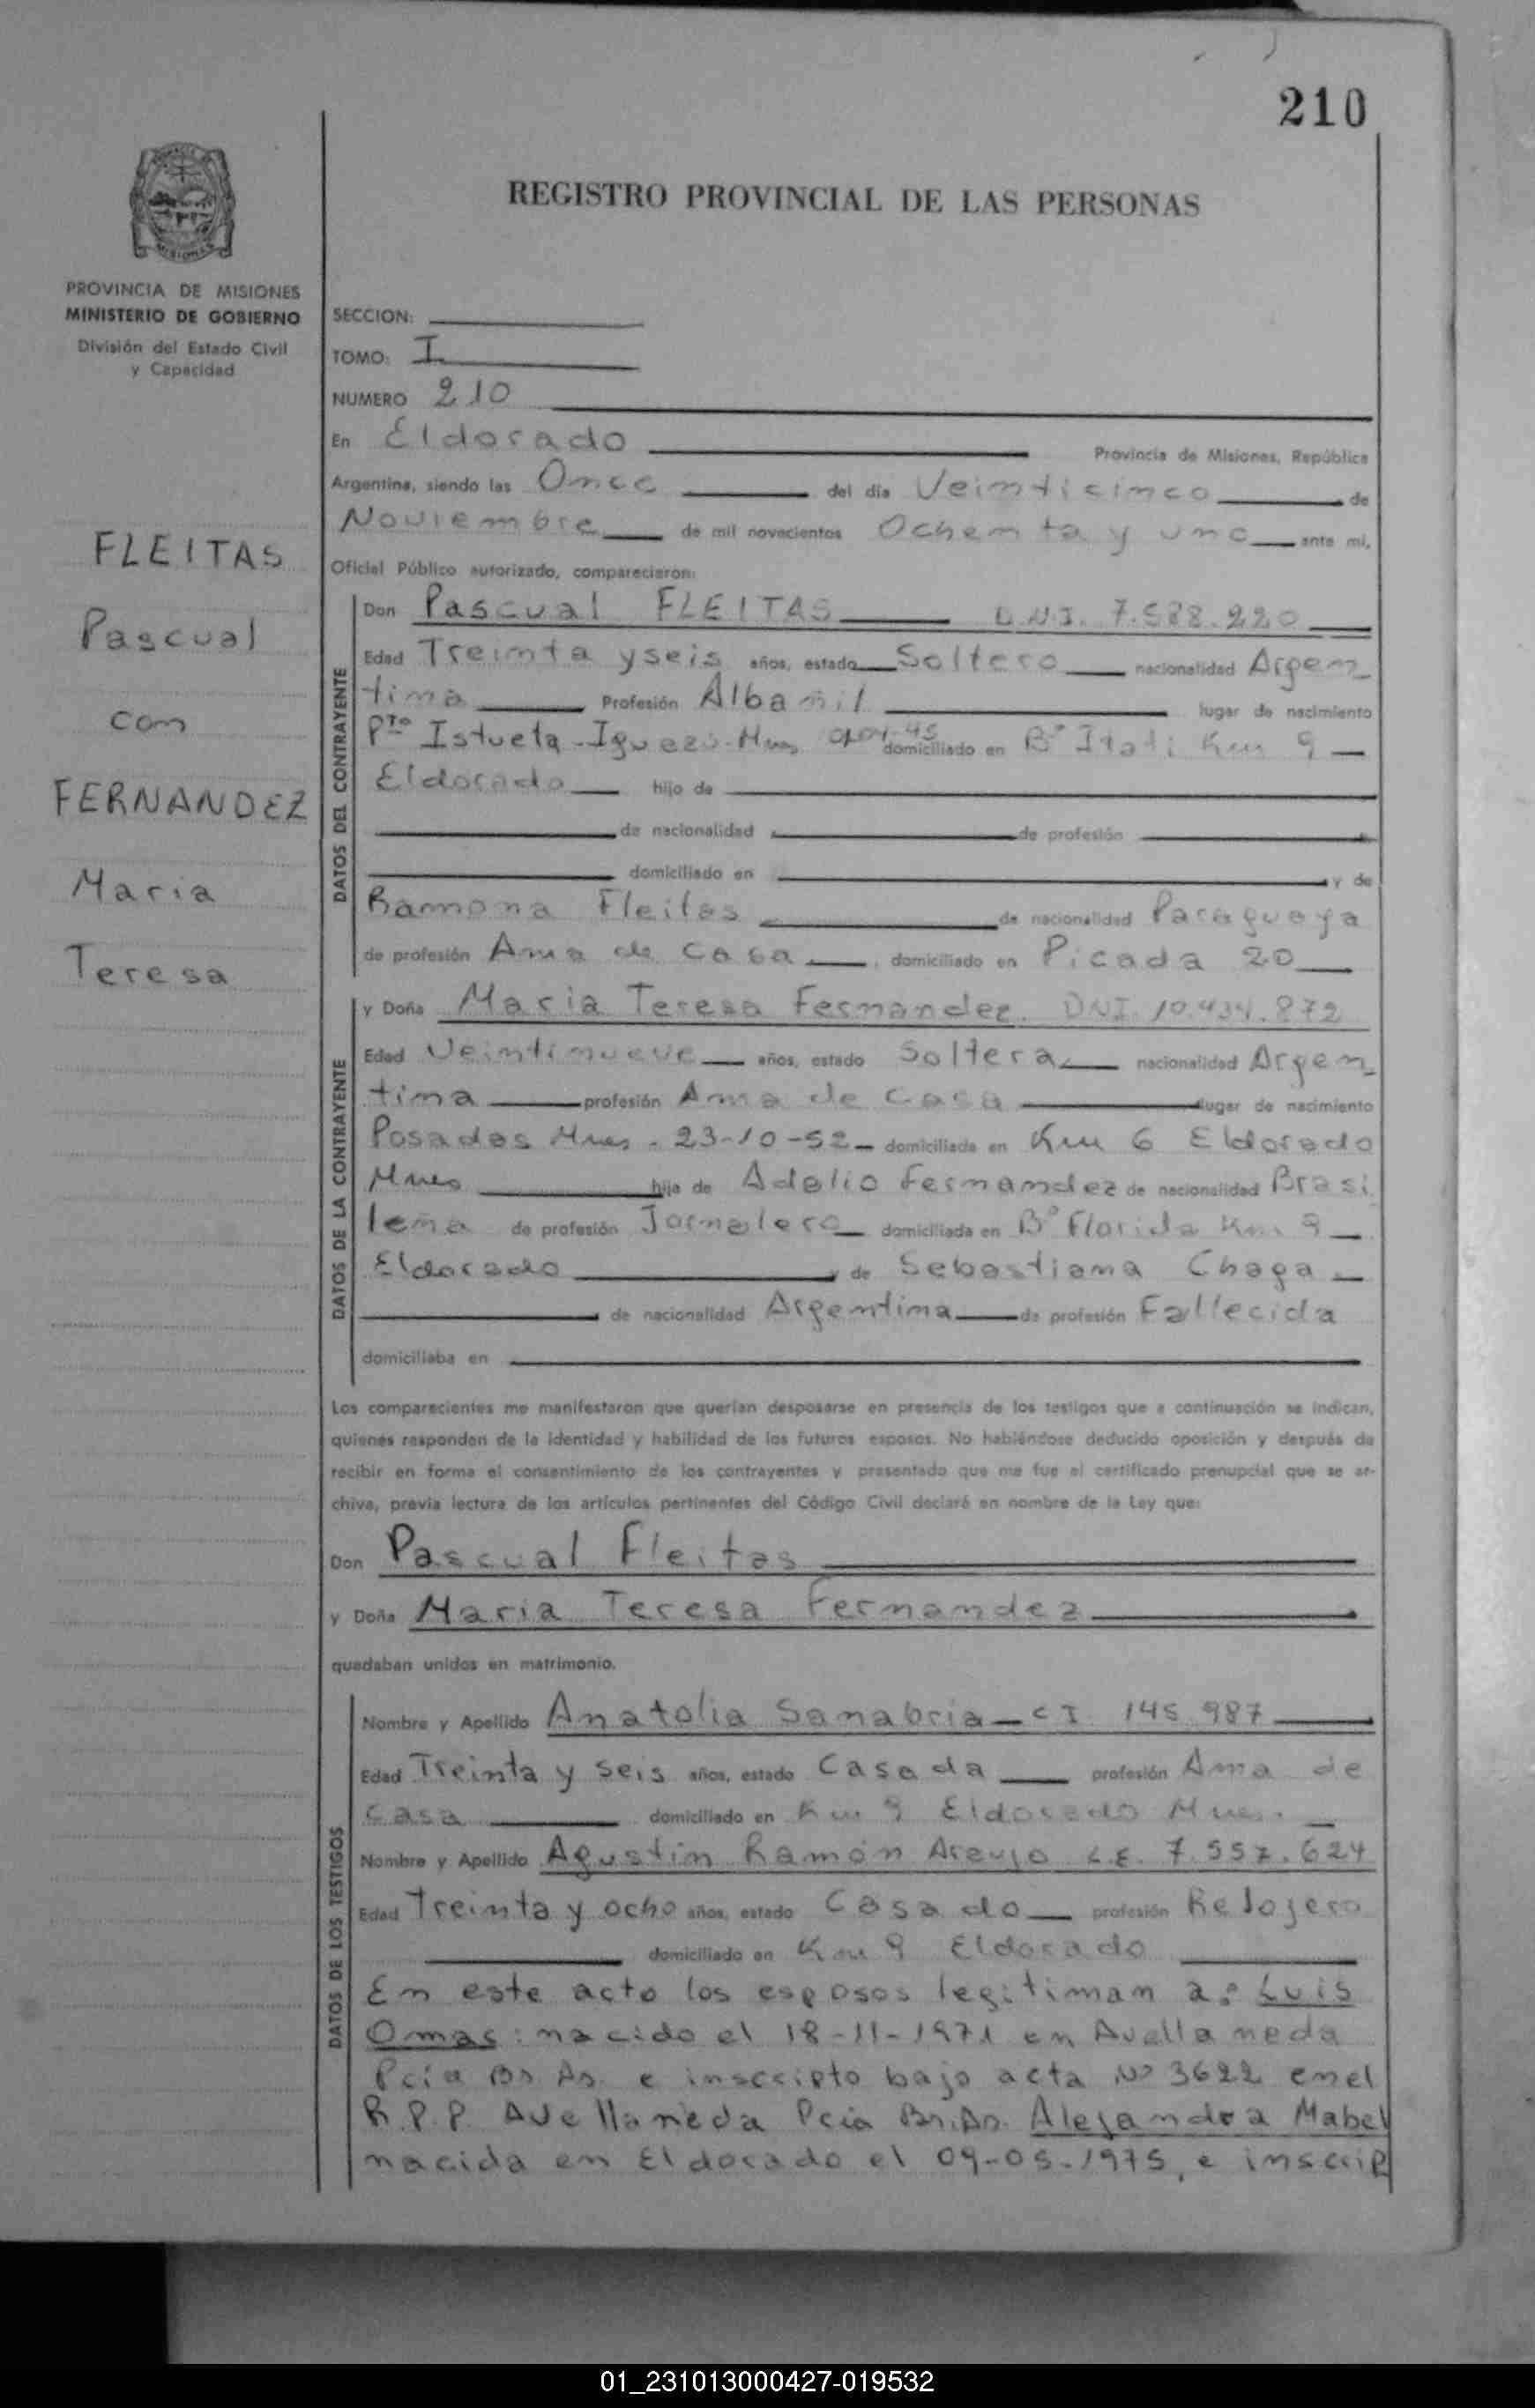 210
REGISTRO PROVINCIAL DE LAS PERSONAS
MISIONES
PROVINCIA DE MISIONES
MINISTERIO DE GOBIERNO
División del Estado Civil
y Capacidad
FLEITAS
Pascual
con
FERNANDEZ
Maria
Teresa
SECCION:
TOMO: I
NUMERO 210
En Eldorado Provincia de Misiones, República
Argentina, siendo las Once del día Veinticinco de
Noviembre de mil novecientos Ochenta y uno ante mi,
Oficial Público autorizado, comparecieron:
DATOS DEL CONTRAYENTE
Don Pascual FLEITAS D.N.I. 7.588.220
Edad Treinta y seis años, estado Soltero nacionalidad Argen
tina Profesión Albañil lugar de nacimiento
Pto Istueta - Iguazú - Mnes domiciliado en B° Itati Km 9
Eldorado hijo de
de nacionalidad de profesión
domiciliado en y de
Ramona Fleitas de nacionalidad Paraguaya
de profesión Ama de casa, domiciliado en Picada 20
DATOS DE LA CONTRAYENTE
y Doña Maria Teresa Fernandez. DNI. 10.434.872
Edad Veintinueve años, estado Soltera nacionalidad Argen
tina profesión Ama de casa lugar de nacimiento
Posadas Mnes - 23-10-52 - domiciliada en Km 6 Eldorado
Mnes hija de Adelio Fernandez de nacionalidad Brasi
leña de profesión Jornalero domiciliada en B° Florida Km 9
Eldorado y de Sebastiana Chaga
de nacionalidad Argentina de profesión Fallecida
domiciliaba en
Los comparecientes me manifestaron que querían desposarse en presencia de los testigos que a continuación se indican,
quienes responden de la identidad y habilidad de los futuros esposos. No habiéndose deducido oposición y después de
recibir en forma el consentimiento de los contrayentes y presentado que me fue el certificado prenupcial que se ar-
chiva, previa lectura de los artículos pertinentes del Código Civil declaré en nombre de la Ley que:
Don Pascual Fleitas
y Doña Maria Teresa Fernandez
quedaban unidos en matrimonio.
DATOS DE LOS TESTIGOS
Nombre y Apellido Anatolia Sanabria CI 145.987
Edad Treinta y seis años, estado Casada profesión Ama de
casa domiciliado en Km 9 Eldorado Mnes.
Nombre y Apellido Agustín Ramón Araujo L.E. 7.557.624
Edad Treinta y ocho años, estado Casado profesión Relojero
domiciliado en Km 9 Eldorado
En este acto los esposos legitiman a: Luis
Omar: nacido el 18-11-1971 en Avellaneda
Pcia Bs. As. e inscripto bajo acta N° 3622 en el
R.P.P. Avellaneda Pcia Bs. As. Alejandra Mabel
nacida en Eldorado el 09-05-1975, e inscrip
01_231013000427-019532